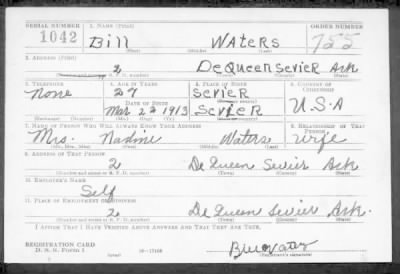 SERIAL NUMBER 1. NAME (Print) ORDER NUMBER
1042 Bill Waters 755
(First) (Middle) (Last)
2. ADDRESS (Print)
2 DeQueen Sevier Ark
(Number and street or R. F. D. number) (Town) (County) (State)
3. TELEPHONE 4. AGE IN YEARS 5. PLACE OF BIRTH 6. COUNTRY OF CITIZENSHIP
None 27 Sevier
DATE OF BIRTH
Mar 22 1913 Sevier U.S.A
7. NAME OF PERSON WHO WILL ALWAYS KNOW YOUR ADDRESS 8. RELATIONSHIP OF THAT PERSON
Mrs. Nadine Waters Wife
(Mr., Mrs., Miss) (First) (Middle) (Last)
9. ADDRESS OF THAT PERSON
2 De Queen Sevier Ark
(Number and street or R. F. D. number) (Town) (County) (State)
10. EMPLOYER'S NAME
Self
11. PLACE OF EMPLOYMENT OR BUSINESS
2 De Queen Sevier Ark.
(Number and street or R. F. D. number) (Town) (County) (State)
I AFFIRM THAT I HAVE VERIFIED ABOVE ANSWERS AND THAT THEY ARE TRUE.
REGISTRATION CARD
D. S. S. Form 1 16-17105
(Registrant's signature)